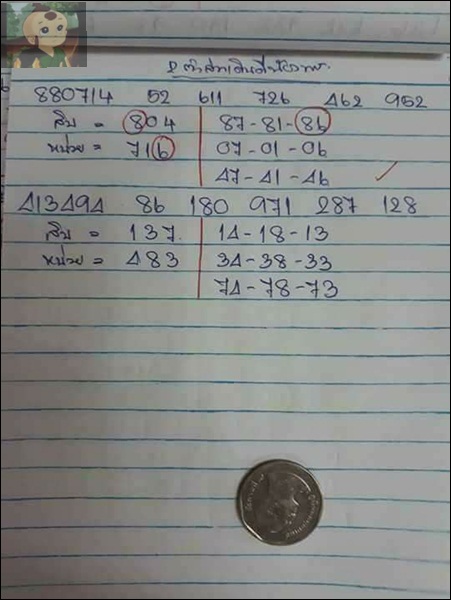 880714 52 611 726 462 952
สิบ = 804 87-81-86
หน่วย = 716 07-01-06
47-41-46
413494 86 180 971 287 128
สิบ = 137 14-18-13
หน่วย = 483 34-38-33
74-78-73